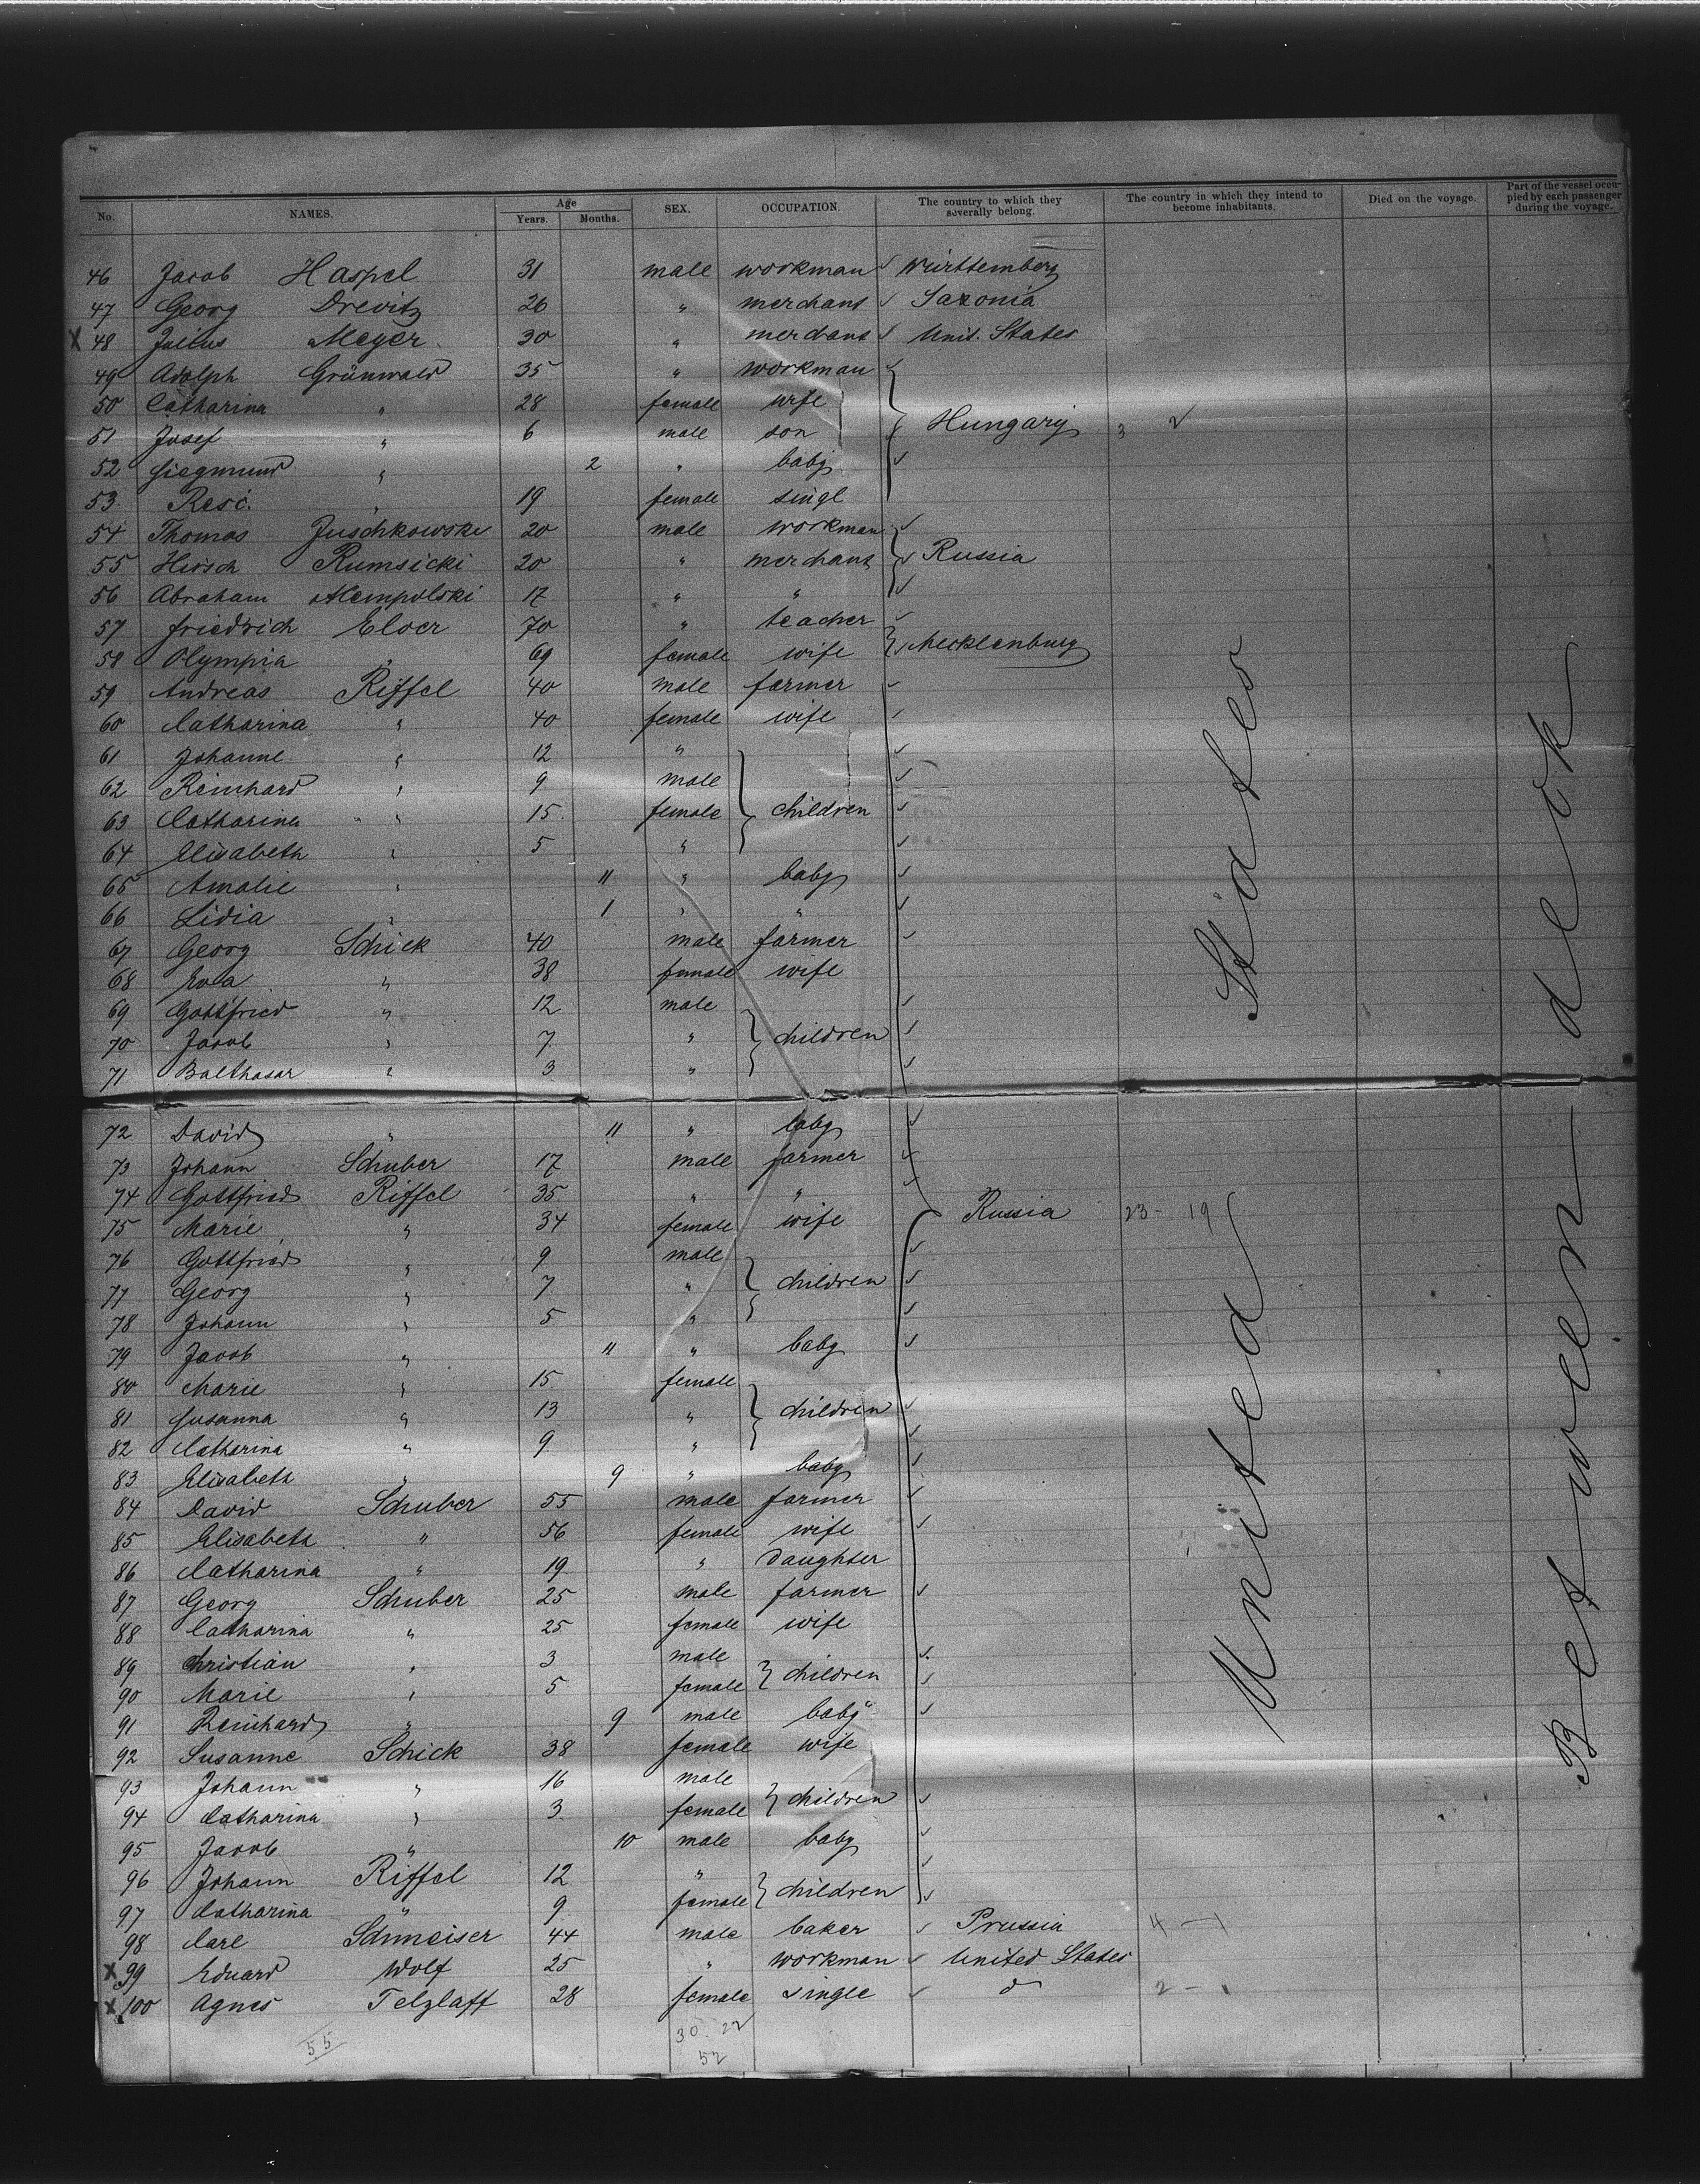 No. NAMES. Age Years. Months. SEX. OCCUPATION. The country to which they severally belong. The country in which they intend to become inhabitants. Died on the voyage. Part of the vessel occupied by each passenger during the voyage.
46 Jacob Haspel 31 male workman Württemberg
47 Georg Drevitz 26 " merchant Saxonia
X 48 Julius Meyer 30 " merchant Unit. States
49 Adolph Grünwald 35 " workman
50 Catharina " 28 female wife
51 Josef " 6 male son Hungary 3 2
52 Siegmund " 2 " baby
53. Resi. " 19 female singl
54 Thomas Juschkowski 20 male workman
55 Hirsch Rumsicki 20 " merchant Russia
56 Abraham 17 " "
57 Friedrich Eloer 70 " teacher
58 Olympia " 69 female wife Mecklenburg
59 Andreas Riffel 40 male farmer
60 Catharina " 40 female wife
61 Johanne " 12 "
62 Reinhard " 9 male
63 Catharina " 15 female children
64 Elisabeth " 5 "
65 Amalie " 11 " baby
66 Lidia " 1 " "
67 Georg Schick 40 male farmer
68 Eva " 38 female wife
69 Gottfried " 12 male
70 Jacob " 7 " children
71 Balthasar " 3 "
72 David " 11 " baby
73 Johann Schuber 17 male farmer
74 Gottfried Riffel 35 " "
75 Marie " 34 female wife Russia 23 - 19
76 Gottfried " 9 male
77 Georg " 7 " children
78 Johann " 5 "
79 Jacob " 11 " baby
80 Marie " 15 female
81 Susanna " 13 " children
82 Catharina " 9 "
83 Elisabeth " 9 " baby
84 David Schuber 55 male farmer
85 Elisabeth " 56 female wife
86 Catharina " 19 " Daughter
87 Georg Schuber 25 male farmer
88 Catharina " 25 female wife
89 Christian " 3 male
90 Marie " 5 female children
91 Reinhard " 9 male baby
92 Susanne Schick 38 female wife
93 Johann " 16 male
94 Catharina " 3 female children
95 Jacob " 10 male baby
96 Johann Riffel 12 "
97 Catharina " 9 female children
98 Carl Schmeiser 44 male baker Prussia 4 - 1
X 99 Eduard Wolf 25 " workman United States
X 100 Agnes Telzlaff 28 female single d 2 - 1
55 30. 22
52
United States
Between deck